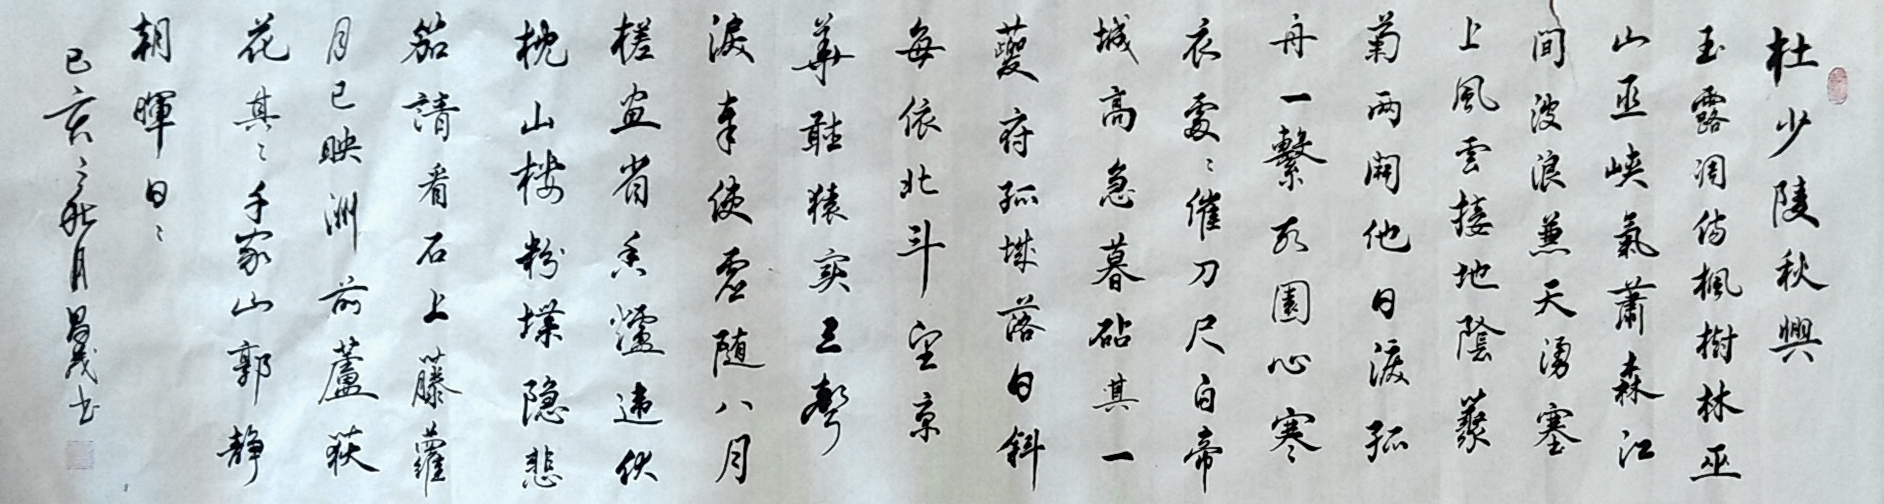 杜少陵秋興
玉露凋傷楓樹林巫
山巫峽氣蕭森江
間波浪兼天湧塞
上風雲接地陰叢
菊兩開他日淚孤
舟一繫故園心寒
衣處〻催刀尺白帝
城高急暮砧其一
夔府孤城落日斜
每依北斗望京
華聽猿實三聲
淚奉使虛隨八月
槎畫省香爐違伏
枕山樓粉堞隐悲
笳請看石上藤蘿
月已映洲前蘆荻
花其〻千家山郭靜
朝暉日〻
已亥〻秋月昌茂书